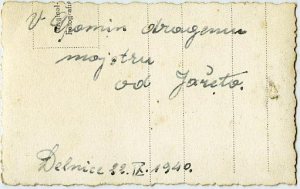 V Spomin dragemu
mojstru
od Jareta.
Delnice 22. IX. 1940.